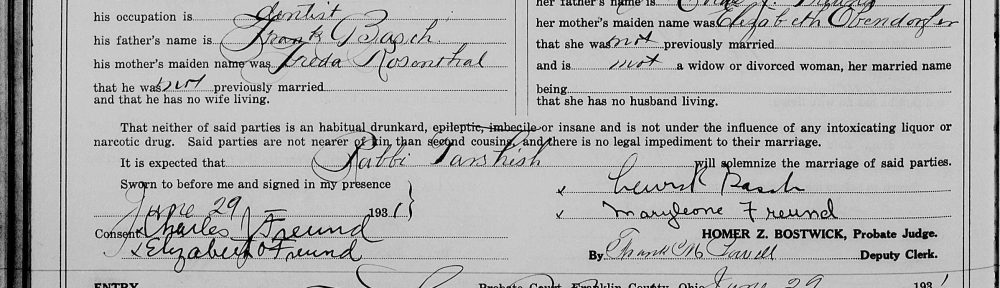 his occupation is dentist
his father's name is Frank Basch.
his mother's maiden name was Freda Rosenthal
that he was not previously married
and that he has no wife living.
her father's name is
her mother's maiden name was Elizabeth Obendorfer
that she was not previously married
and is not a widow or divorced woman, her married name
being
that she has no husband living.
That neither of said parties is an habitual drunkard, epileptic, imbecile or insane and is not under the influence of any intoxicating liquor or
narcotic drug. Said parties are not nearer of kin than second cousins, and there is no legal impediment to their marriage.
It is expected that Rabbi Tarshish will solemnize the marriage of said parties.
Sworn to before me and signed in my presence
June 29 1931
Consent x Charles J Freund
x Elizabeth O Freund
x Lewis R Basch
x Maryleone Freund
HOMER Z. BOSTWICK, Probate Judge.
By Frank M Deputy Clerk.
ENTRY Probate Court, Franklin County, Ohio June 29 1931